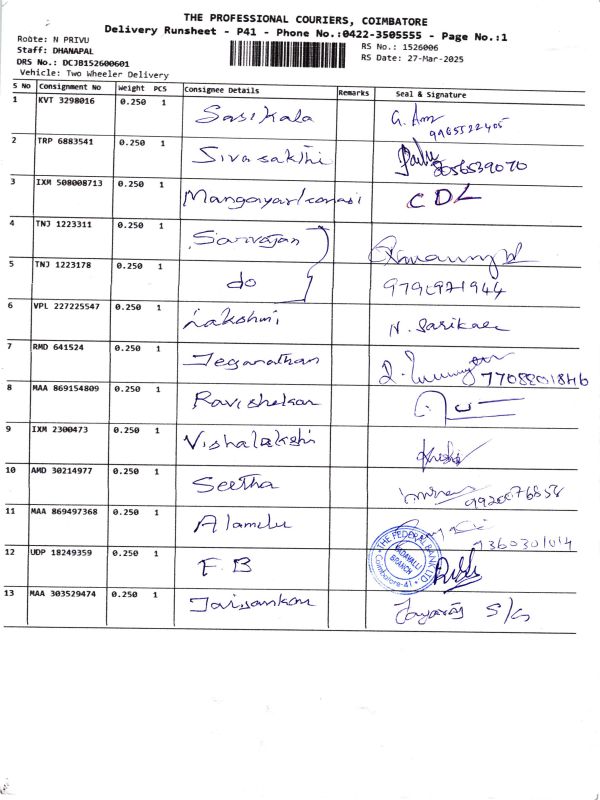 THE PROFESSIONAL COURIERS, COIMBATORE
Delivery Runsheet - P41 - Phone No.:0422-3505555 - Page No.:1
Route: N PRIVU
RS No.: 1526006
Staff: DHANAPAL
RS Date: 27-Mar-2025
DRS No.: DCJB152600601
Vehicle: Two Wheeler Delivery
S No Consignment No Weight PCS Consignee Details Remarks Seal & Signature
1 KVT 3298016 0.250 1 Sasikala
9965522405
2 TRP 6883541 0.250 1 Sivasakthi 8056539070
3 IXM 508008713 0.250 1 CDL
4 TNJ 1223311 0.250 1
5 TNJ 1223178 0.250 1 do
6 VPL 227225547 0.250 1 Lakshmi N. Sarikaa
7 RMD 641524 0.250 1 Jeganathan 7708201846
8 MAA 869154809 0.250 1 Ravishekar
9 IXM 2300473 0.250 1 Vishalakshi
10 AMD 30214977 0.250 1 Seetha
11 MAA 869497368 0.250 1 Alamelu
9360301014
12 UDP 18249359 0.250 1 F.B THE FEDERAL BANK LTD VADAVALLI BRANCH Coimbatore-41
13 MAA 303529474 0.250 1 Jaisankar Jayaraj S/o